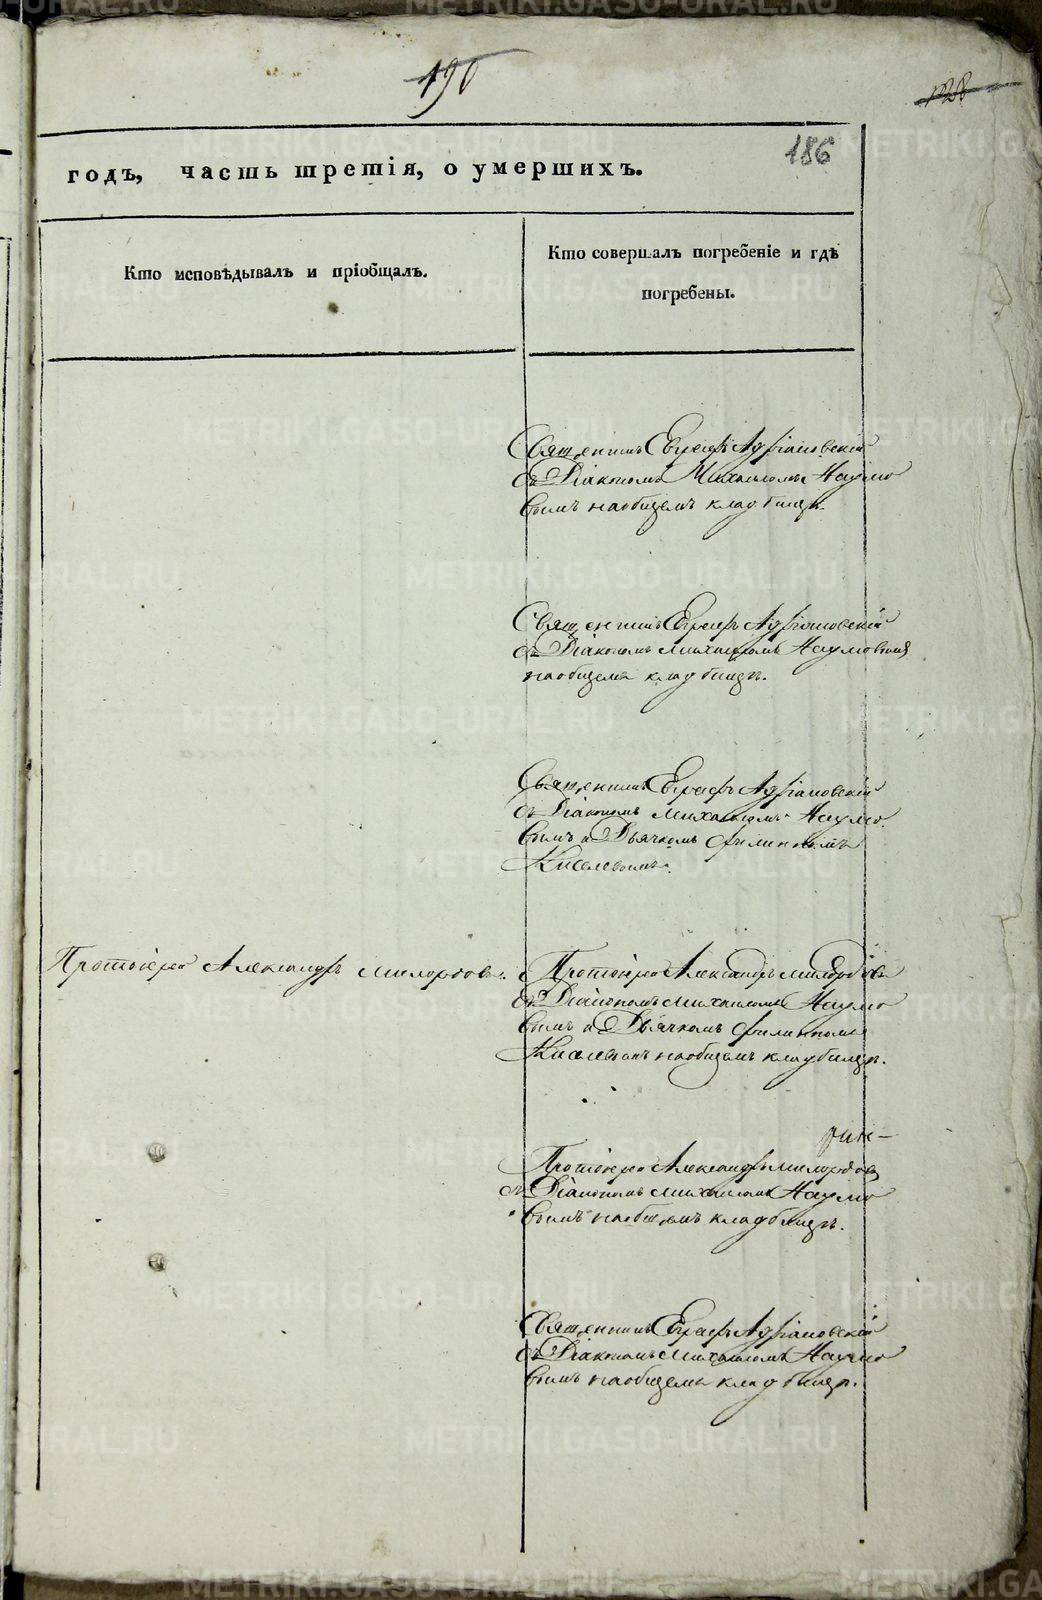 190
128
186
годъ, часть третія, о умершихъ.
Кто исповѣдывалъ и пріобщалъ.
Кто совершалъ погребеніе и гдѣ
погребены.
Священникъ Евграфъ Адріановскій
съ Діакономъ Михаиломъ Наумо
вымъ на общемъ кладбищѣ.
Священникъ Евграфъ Адріановскій
съ Діакономъ Михаиломъ Наумовымъ
на общемъ кладбищѣ.
Священникъ Евграфъ Адріановскій
съ Діакономъ Михаиломъ Наумо
вымъ и Дьячкомъ Филиппомъ
Киселевымъ.
Протоіерей Александръ Милордовъ.
Протоіерей Александръ Милордовъ
съ Діакономъ Михаиломъ Наумо
вымъ и Дьячкомъ Филиппомъ
Киселевымъ на общемъ кладбищѣ.
Протоіерей Александръ Милордовъ
съ Діакономъ Михаиломъ Наумо
вымъ на общемъ кладбищѣ.
Священникъ Евграфъ Адріановскій
съ Діакономъ Михаиломъ Наумо
вымъ на общемъ кладбищѣ.
METRIKI.GASO-URAL.RU